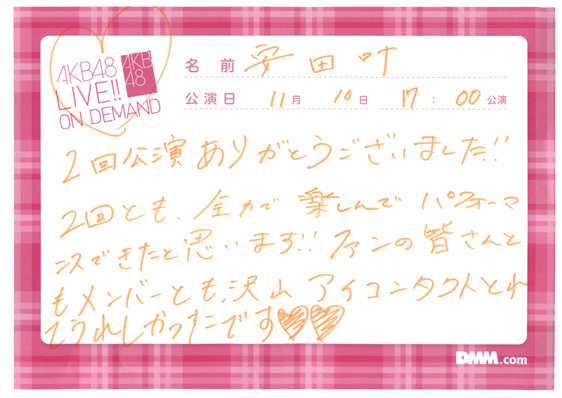 AKB48
LIVE!!
ON DEMAND
AKB
48
名前 安田叶
公演日 11月 10日 17:00公演
2回公演ありがとうございました!!
2回とも、全力で楽しんでパフォーマ
ンスできたと思います!! ファンの皆さんと
もメンバーとも、沢山アイコンタクトとれ
てうれしかったです♡♡
DMM.com